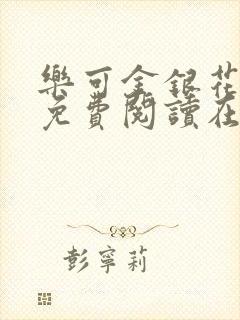 樂可金銀花
免費閱讀在
彭寧莉